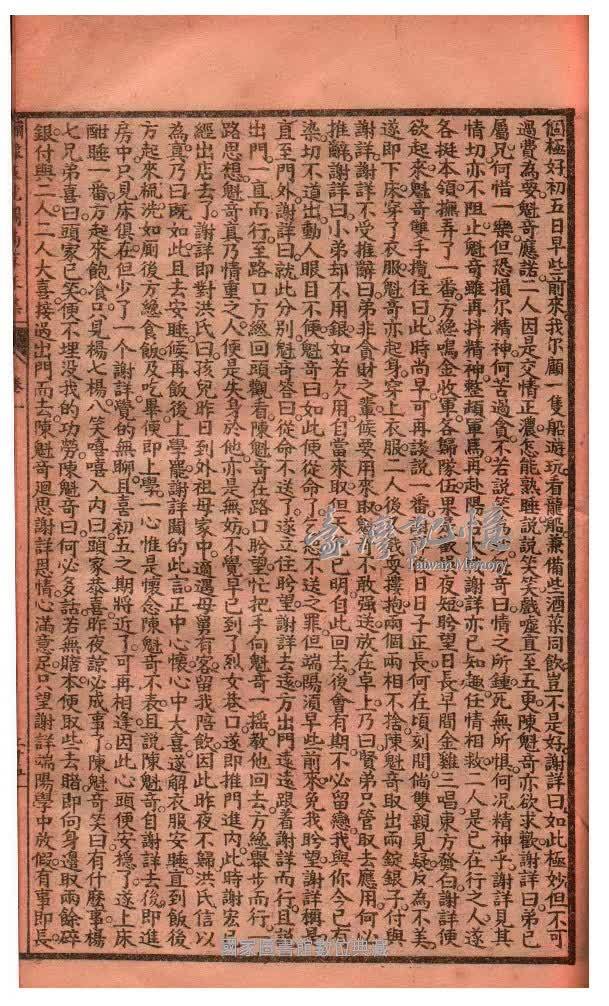 個極好初五日早些前來我尔顧一隻船遊玩看龍船兼備些酒菜同飲豈不是好謝詳曰如此極妙但不可
過費為要魁奇應諾二人因是交情正濃怎能熟睡說說笑笑戲噱直至五更陳魁奇亦欲求歡謝詳曰弟已
屬兄何惜一樂但恐損尔精神何苦過貪不若說笑為魁奇曰情之所鍾死無所惧何况精神乎謝詳見其
情切亦不阻止魁奇雖再抖精神整頓軍馬再赴陽謝詳亦已知趣任情相救二人是已在行之人遂
各挺本領撫弄了一番方纔鳴金收軍各歸隊伍果夜短盼望日長早間金雞三唱東方發白謝詳便
欲起來魁奇雙手攬住曰此時尚早可再談說一番謝曰日子正長何在頃刻間倘雙親見疑反為不美
遂即下床穿了衣服魁奇亦起身穿上衣服二人後我要摟抱兩個兩相不捨陳魁奇取出兩錠銀子付與
謝詳謝詳不受推辭曰弟非貪財之輩候要用來取魁不敢强送放在卓上乃曰賢弟只管取去應用何必
推辭謝詳曰小弟却不用銀如若欠用自當來取但天已明自此回去後會有期不必留戀我與你今已有
染切不道出動人眼目不便魁奇曰如此便從命了恕不送之罪但端陽須早些前來免我盼望謝詳稱是
直至門外謝詳曰就此分别魁奇答曰從命不送了遂立住盼望謝詳去遠方出門遠遠跟着謝詳而行且說
出門一直而行至路口方纔回頭觀看陳魁奇在路口盼望忙把手向魁奇一摇教他回去方纔舉步而行
路思想魁奇真乃情重之人便是失身於他亦是無妨不覺早已到了烈女巷口遂即推門進内此時謝宏已
經出店去了謝詳即對洪氏曰孩兒昨日到外祖母家中適遇母舅有客留我陪飲因此昨夜不歸洪氏信以
為真乃曰既如此且去安睡候再飯後上學罷謝詳聞的此言正中心懷心中大喜遂解衣服安睡直到飯後
方起來梳洗如厠後方纔食飯及吃畢便即上學一心惟是懷念陳魁奇不表且說陳魁奇自謝詳去後即進
房中只見床俱在但少了一个謝詳覺的無聊且喜初五之期將近了可再相逢因此心頭便安穩了遂上床
酣睡一番方起來飽食只見楊七楊八笑嘻嘻入内曰頭家恭喜昨夜諒必成事了陳魁奇笑曰有什麽事楊
七兄弟喜曰頭家已笑便不埋没我的功勞陳魁奇曰何必多話若無賭本便取些去賭即向身邊取兩餘碎
銀付與二人二人大喜接過出門而去陳魁奇迴思謝詳恩情心滿意足只望謝詳端陽學中放假有事即長
卷一
國家圖書館數位典藏
臺灣記憶
Taiwan Memory